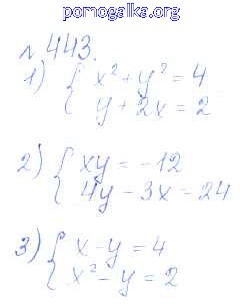 pomogalka.org
№443.
1) { x² + y² = 4
y + 2x = 2
2) { xy = -12
4y - 3x = 24
3) { x - y = 4
x² - y = 2